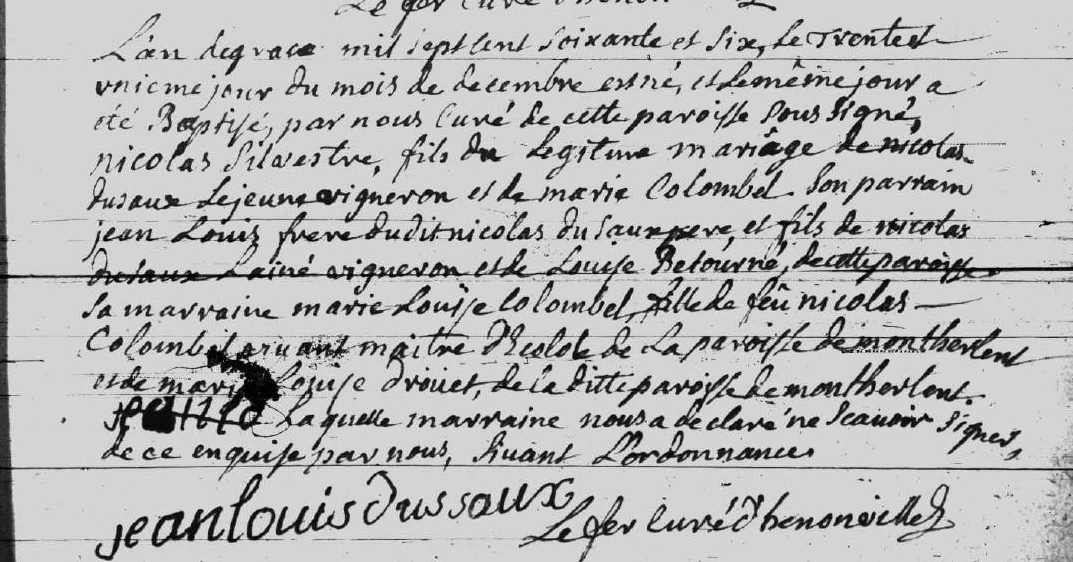 Le fer Curé
L'an degrace mil sept Cent Soixante et Six, Le Trenteet
unieme jour du mois de decembre est né, et Le même jour a
été Baptisé, par nous Curé de cette paroisse Sous Signé,
nicolas Silvestre, fils du Legitime mariâge de nicolas
dusaux Lejeune vigneron et de marie Colombel. Son parrain
jean Louis frere dudit nicolas du Saux pere, et fils de nicolas
dusaux Lainé vigneron et de Louise Betourné, de cette paroisse.
Sa marraine marie Louise Colombel, fille de feû nicolas
Colombel vivant maitre d'Ecole de La paroisse de montherlent
et de marie Louise drouet, de la ditte paroisse de montherlent.
Laquelle marraine nous a declaré ne Scavoir Signer,
de ce enquise par nous, Suivant L'ordonnance.
jean louis dussaux Le fer Curé d'henonville